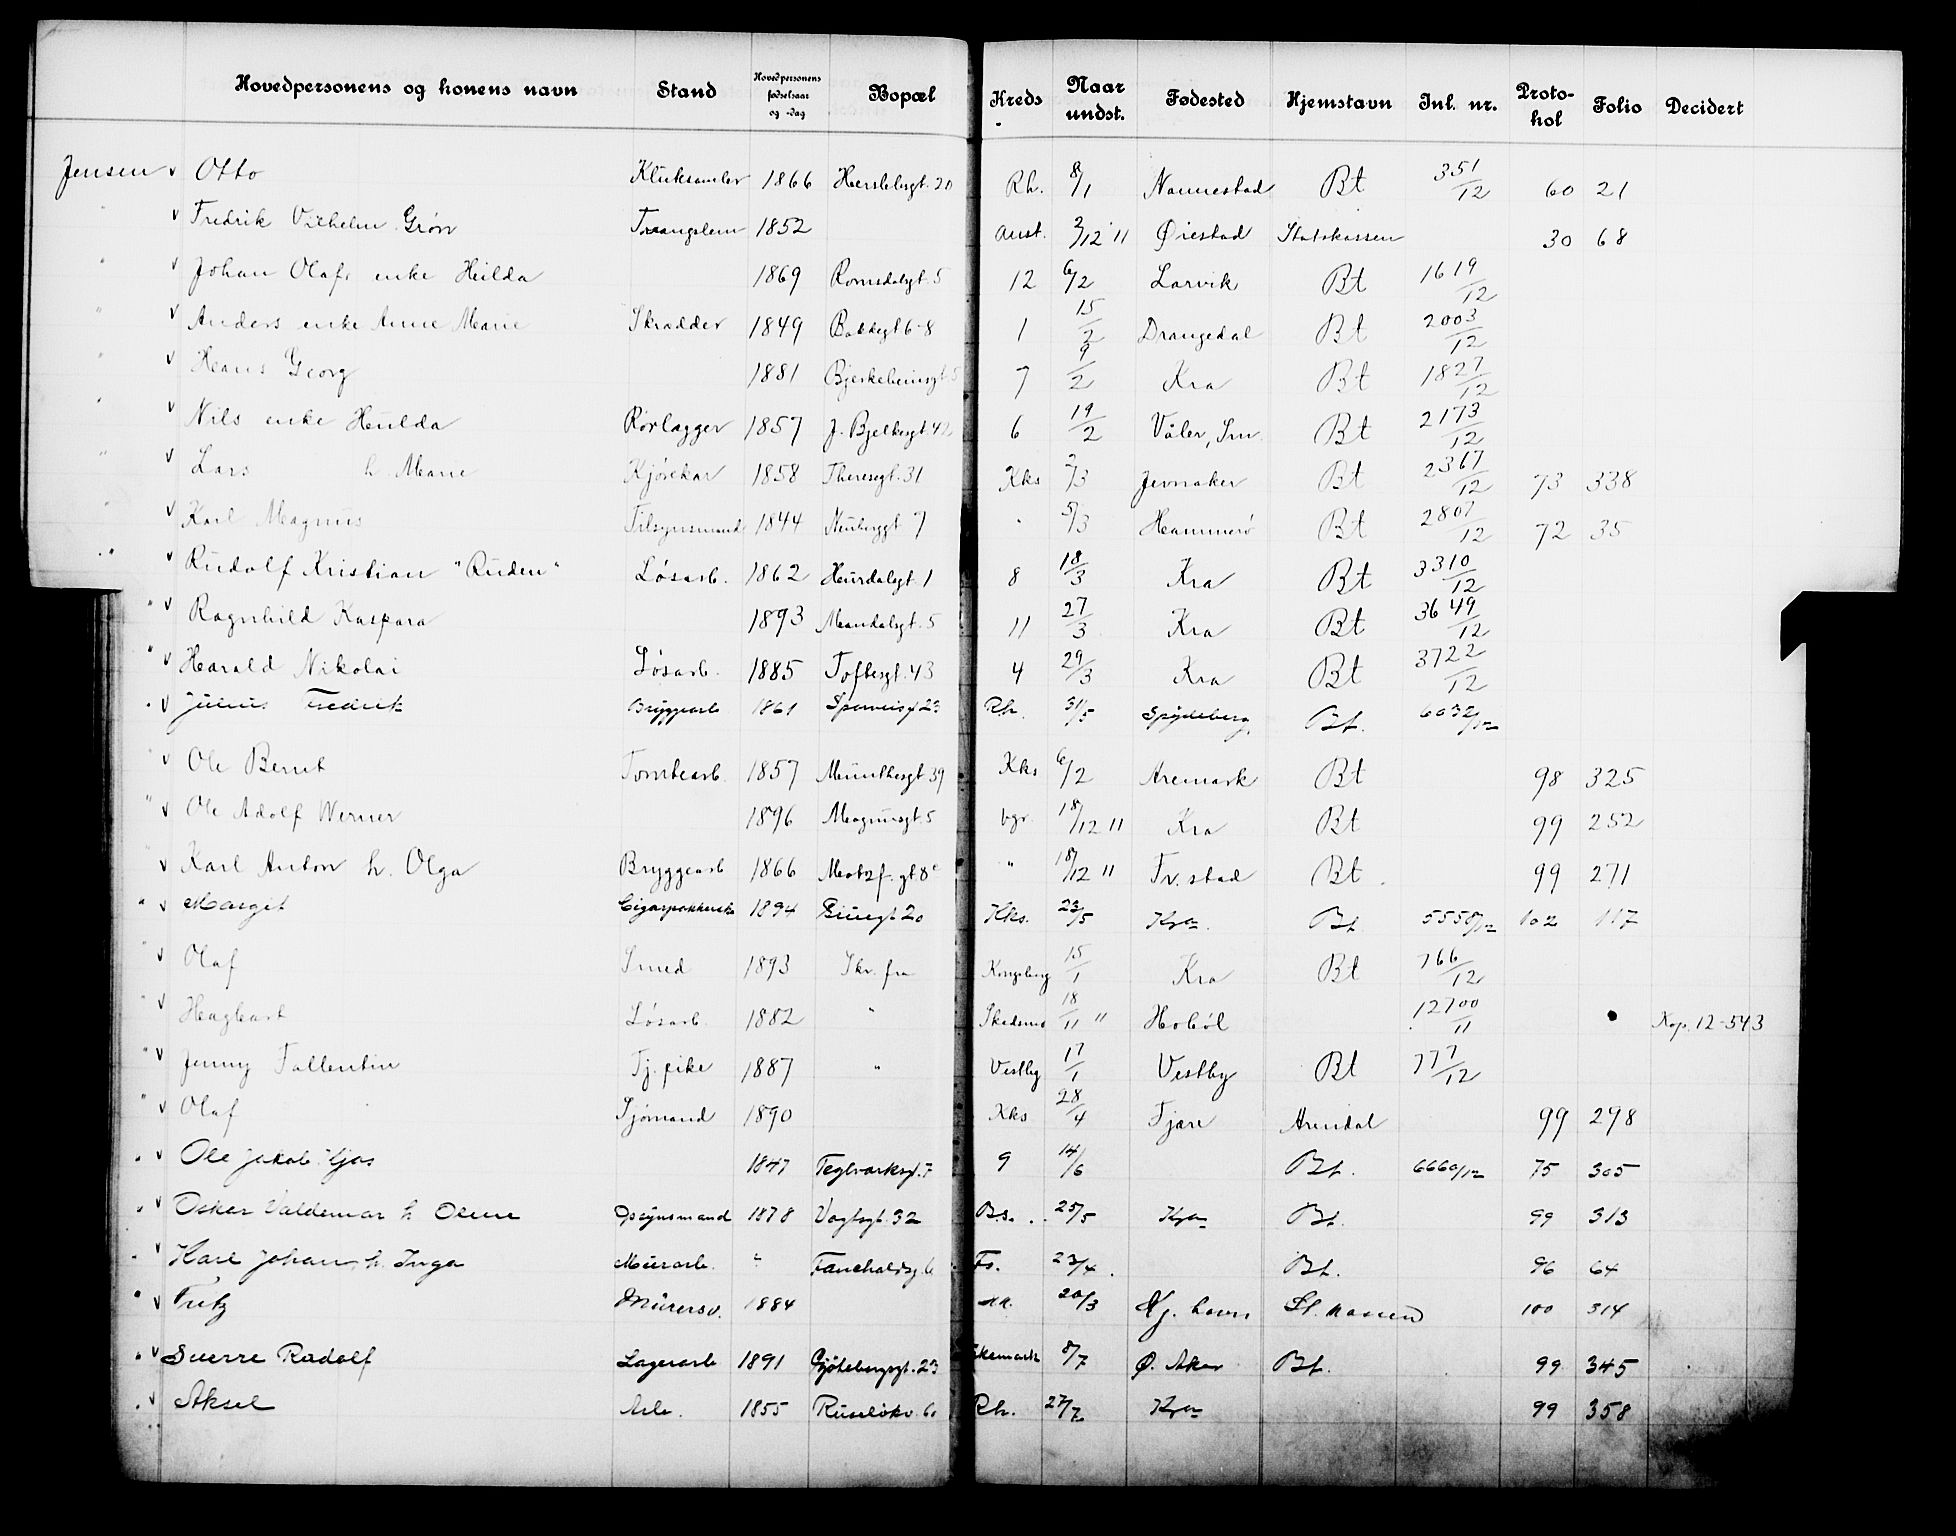 Hovedpersonens og konens navn Stand Hovedpersonens fødselsaar og -dag Bopæl Kreds Naar undst. Fødested Hjemstavn Inl. nr. Protokol Folio Decidert
Jensen v Otto Klutksamler 1866 Herslebsgt. 20 Rh. 8/1 Nannestad Bt 351/12 60 21
" v Fredrik Vilhelm Grön Tvangslem 1852 Anst. 2/12 11 Øiestad Statskassen 30 68
" v Johan Olafs enke Hilda 1869 Romsdalsgt. 5 12 6/2 Larvik Bt 1619/12
" v Anders enke Anne Marie Skrædder 1849 Bakkegt 6-8 1 15/2 Drangedal Bt 2003/12
" v Hans Georg 1881 Bjerkeheimsgt 5 7 9/2 Kra Bt 1827/12
" v Nils enke Hulda Rørlægger 1857 J. Bjelkesgt. 42 6 19/2 Våler, Sm. Bt 2173/12
" v Lars h. Marie Kjörekar 1858 Theresegt. 31 Kks 2/3 Jevnaker Bt 2367/12 73 338
" v Karl Magnus Tilsynsmand 1844 Neuberggt 7 " 5/3 Hammerö Bt 2807/12 72 35
" v Rudolf Kristian "Ruden" Løsarb. 1862 Hurdalsgt. 1 8 18/3 Kra Bt 3310/12
" v Ragnhild Kaspara 1893 Mandalsgt. 5 11 27/3 Kra Bt 3649/12
" v Harald Nikolai Løsarb. 1885 Toftesgt. 43 4 29/3 Kra Bt 3722/12
" v Julius Fredrik Bryggearb 1861 23 Rh. 31/5 Spydeberg Bt. 6032/12
" v Ole Bernt Tomtearb. 1857 Munthesgt 39 Kks 6/2 Aremark Bt 98 325
" v Ole Adolf Werner 1896 Magnusgt. 5 Vgr. 18/12 11 Kra Bt 99 252
" v Karl Anton h. Olga Bryggearb 1866 Motzf. gt. 8c " 18/12 11 Fr. stad Bt. 99 271
" v Margit Cigarpakkerske 1894 20 Kks. 23/5 Kra. Bt 5558/12 102 117
" v Olaf Smed 1893 Skr. fra Kongsberg 15/1 Kra Bt 766/12
" v Hagbart Løsarb. 1882 " Skedsmo 18/11 11 Hobøl 12700/11 Kop. 12-543
" v Jenny Tallentin Tj. pike 1887 " Vestby 17/1 Vestby Bt 777/12
" v Olaf Sjømand 1890 Kks 28/4 Fjære Arendal 99 298
" v Ole Jakob 1847 Teglverksgt. 7 9 14/6 Bt. 6660/12 75 305
" v Oskar Valdemar h Opsynsmand 1878 Vogtsgt. 32 B.s. 25/5 Kra Bt. 99 313
" v Karl Johan h. Inga Murarb. " Fauchaldsg. 6 Fs. 23/4 Bt. 96 64
" v Fritz Murersv. 1884 20/3 Kj. havn St. kassen 100 314
" v Sverre Rudolf Lagerarb 1891 Gøteborgsgt. 23 8/7 Ø. Aker Bt. 99 345
" v Aksel Arb. 1855 Ruseløkv. 60 Rh. 27/7 Kra 99 358